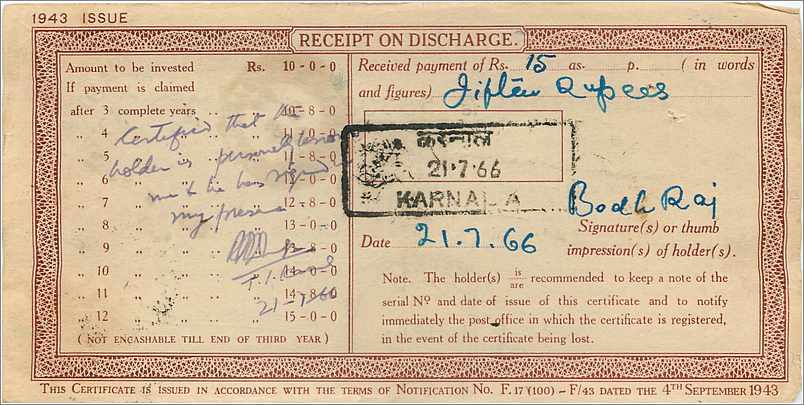 1943 ISSUE
RECEIPT ON DISCHARGE.
Amount to be invested Rs. 10-0-0
If payment is claimed
after 3 complete years .. .. 10-8-0
" 4 " " " " 11-0-0
" 5 " " " " 11-8-0
" 6 " " " " 12-0-0
" 7 " " " " 12-8-0
" 8 " " " " 13-0-0
" 9 " " " " 13-8-0
" 10 " " " " 14-0-0
" 11 " " " " 14-8-0
" 12 " " " " 15-0-0
(NOT ENCASHABLE TILL END OF THIRD YEAR)
Certified that the
holder is personally known
me & he has signed
my presence
21-7-66
Received payment of Rs. 15 as. p. (in words
and figures) Fifteen Rupees
करनाल
21·7·66
KARNAL A
Bodh Raj
Signature(s) or thumb
impression(s) of holder(s).
Date 21.7.66
Note. The holder(s) is/are recommended to keep a note of the
serial No and date of issue of this certificate and to notify
immediately the post office in which the certificate is registered,
in the event of the certificate being lost.
THIS CERTIFICATE IS ISSUED IN ACCORDANCE WITH THE TERMS OF NOTIFICATION No. F.17 (100) – F/43 DATED THE 4TH SEPTEMBER 1943